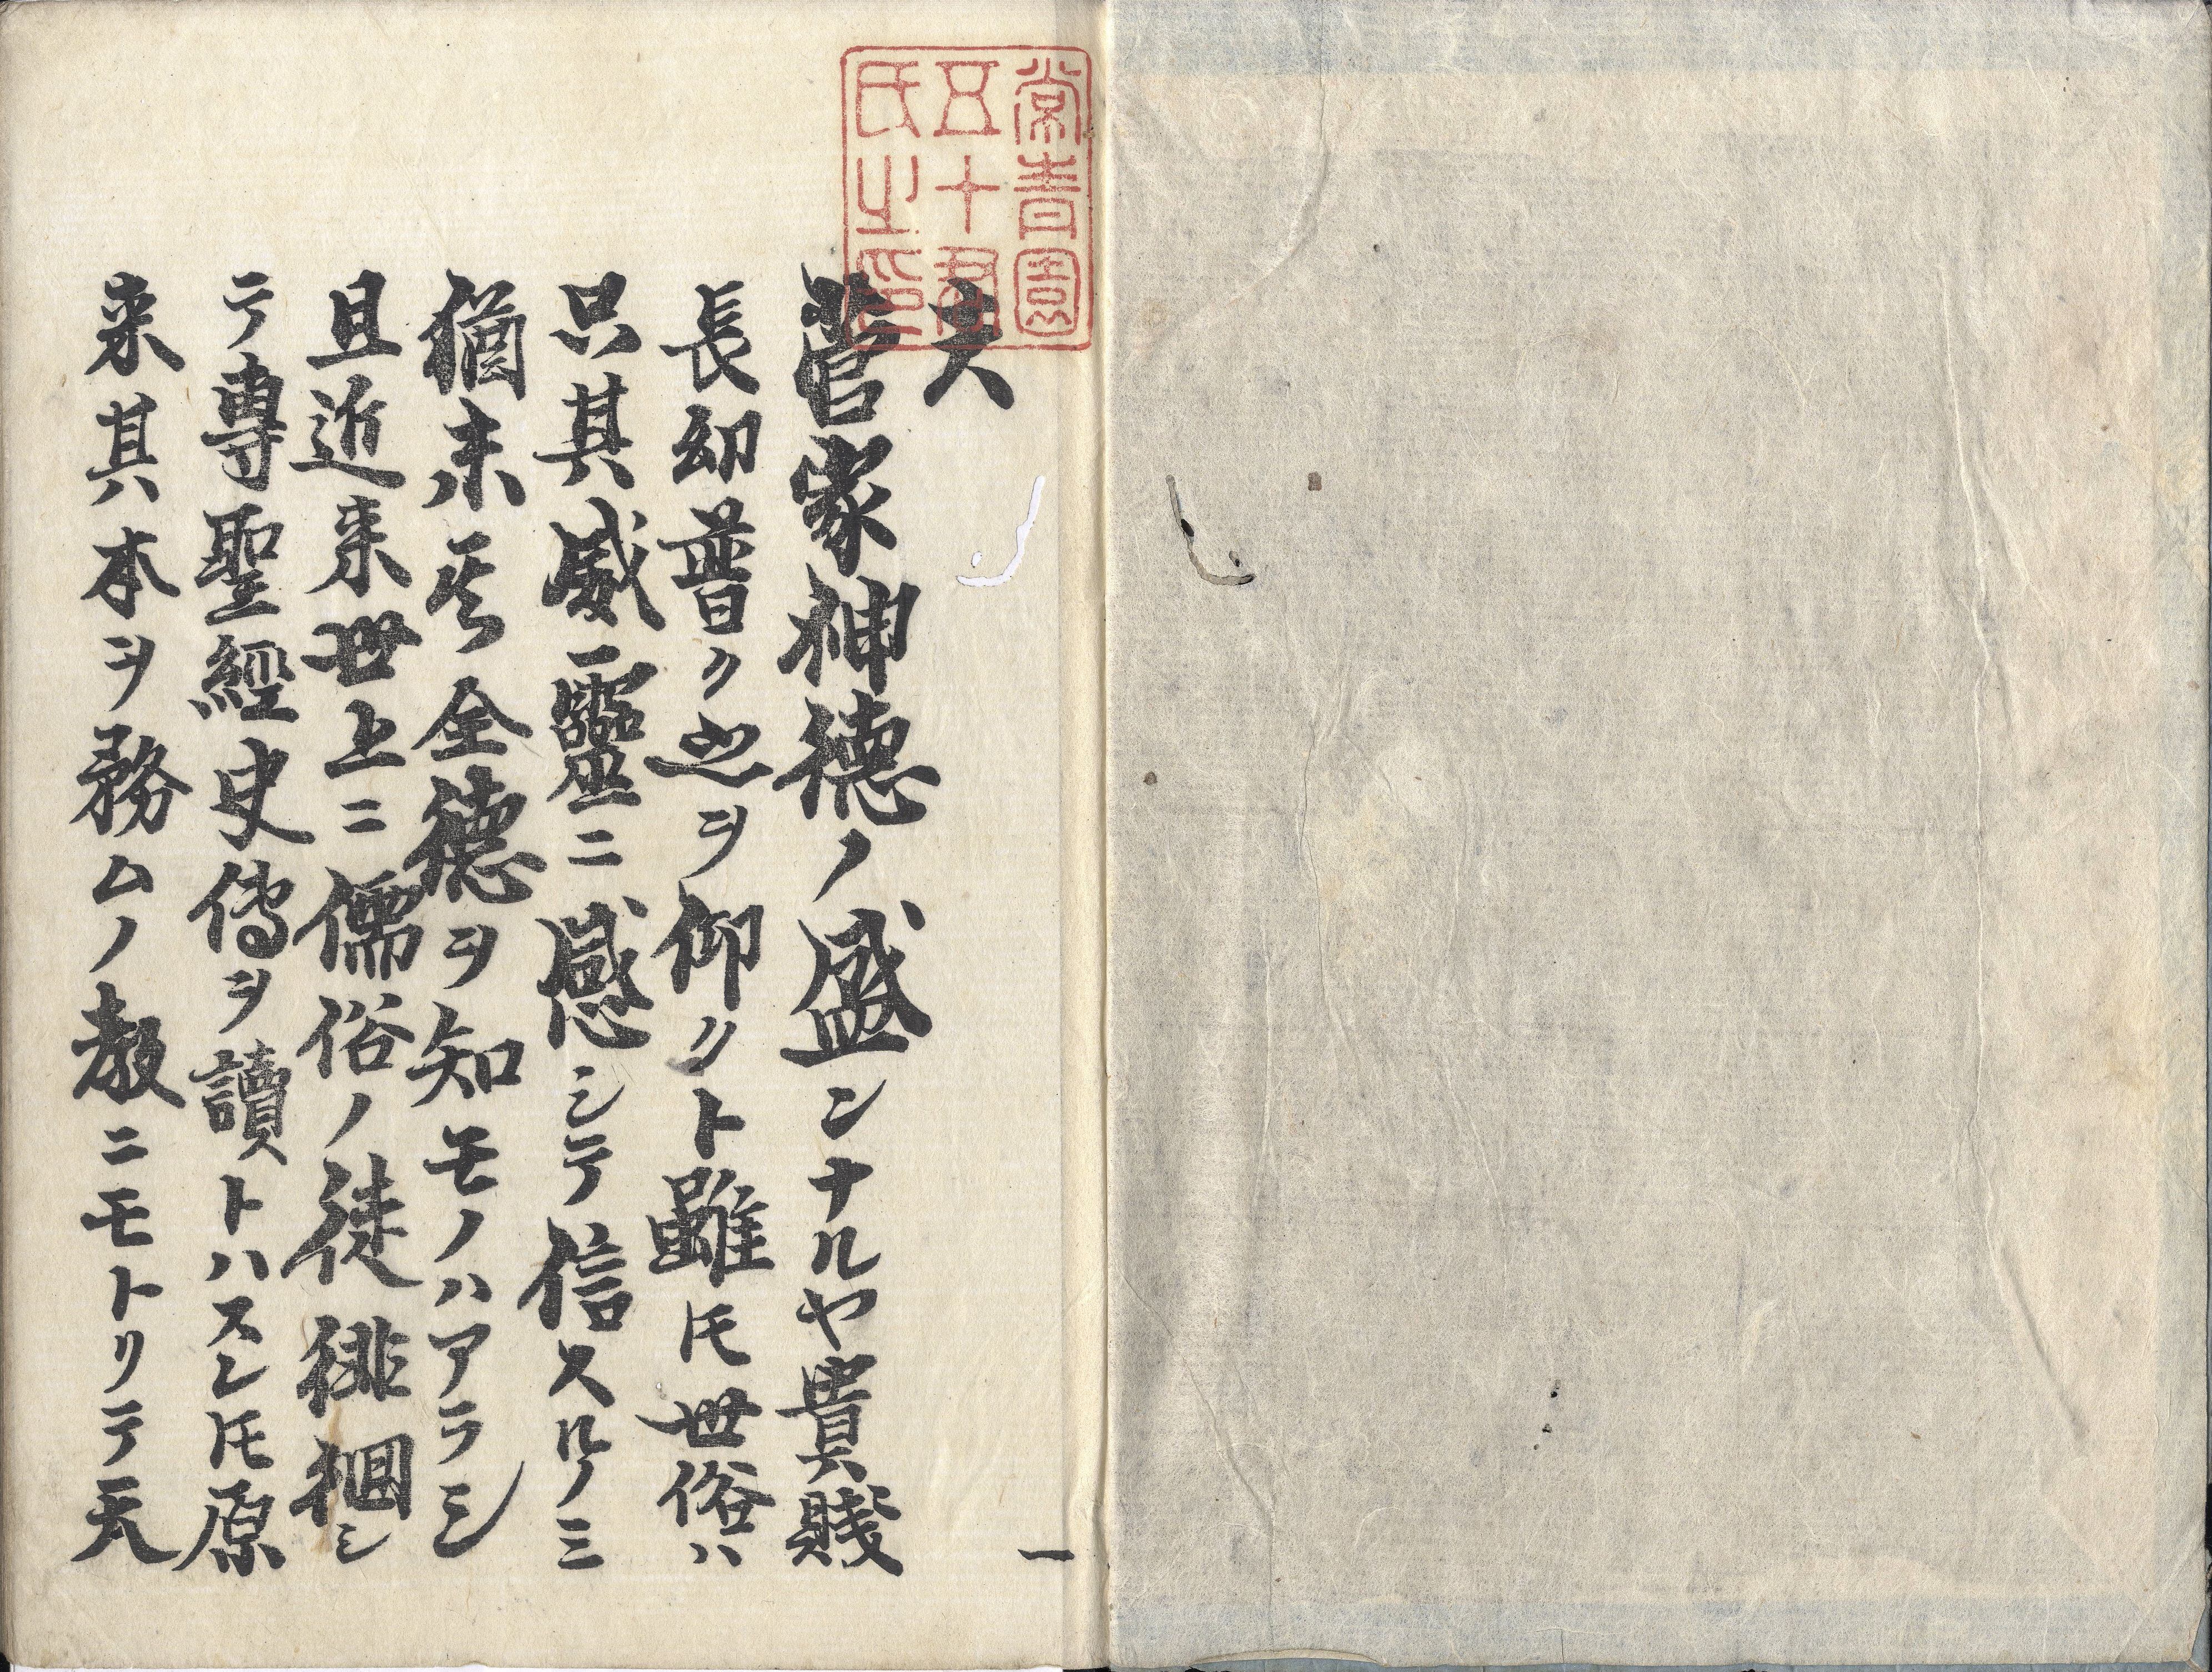 常青園
五十君
氏之印
夫
菅家神德ノ盛ンナルヤ貴賤
長幼普ク之ヲ仰クト雖𪜈世俗ハ
只其威靈ニ感シテ信スルノミ
猶未其全德ヲ知モノハアラシ
且近来世上ニ儒俗ノ徒徘徊シ
テ專聖經史傳ヲ讀トハスレ𪜈原
来其本ヲ務ムノ教ニモトリテ天
一